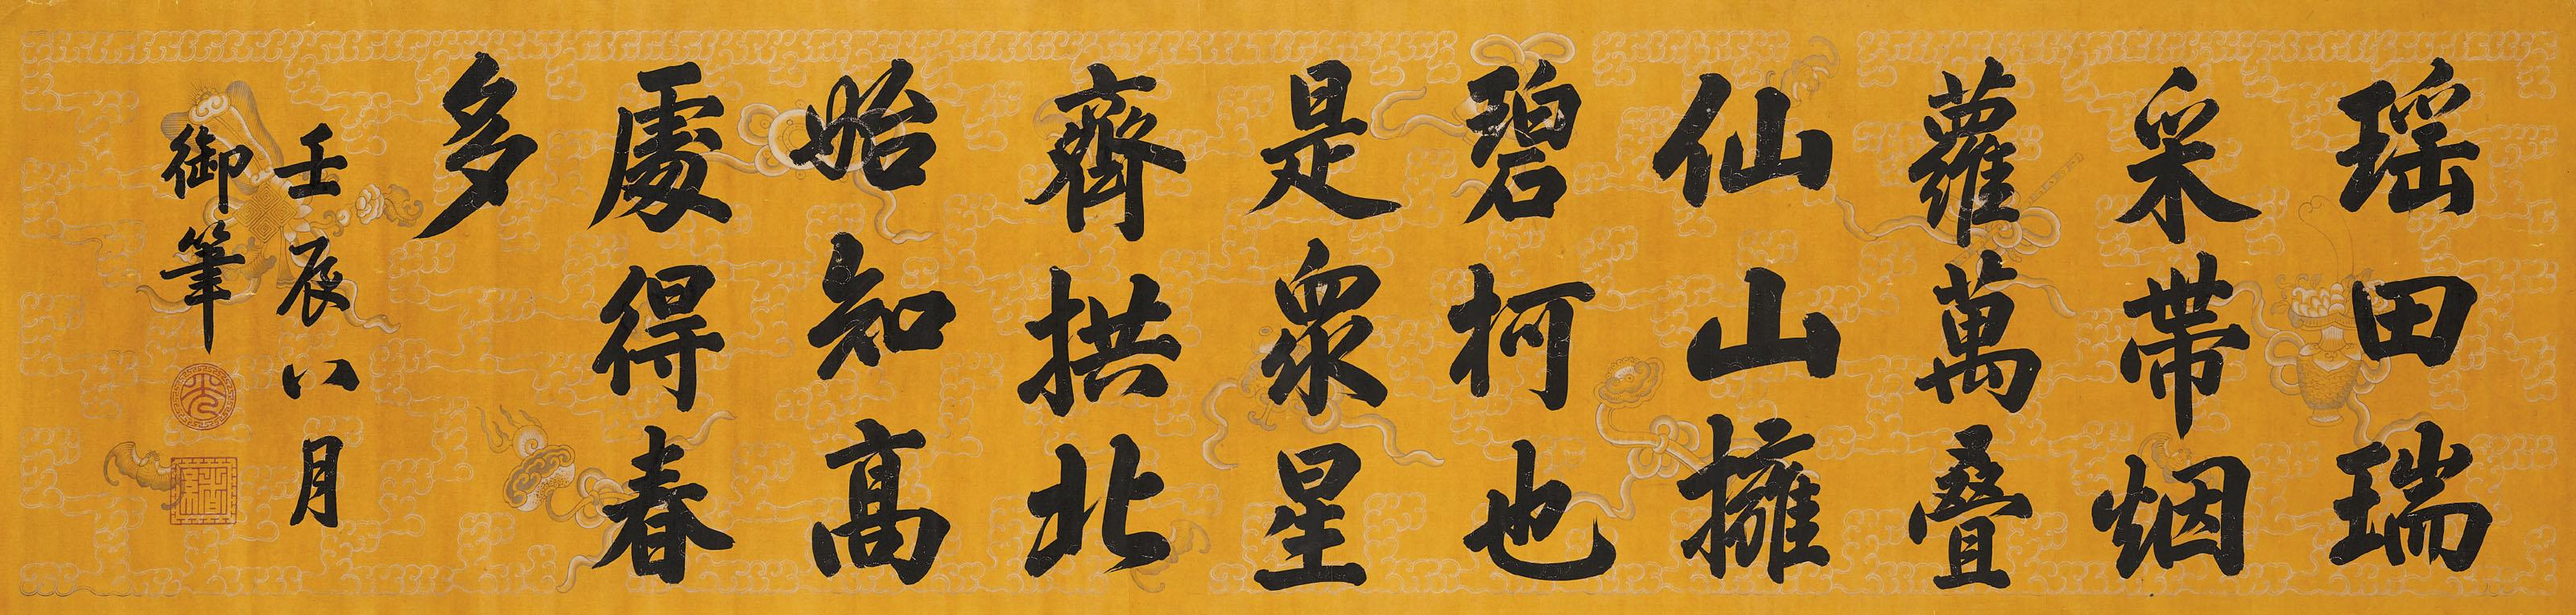 瑶田瑞
采帶烟
蘿萬疊
仙山擁
碧柯也
是衆星
齊拱北
始知高
處得春
多
壬辰八月
御筆